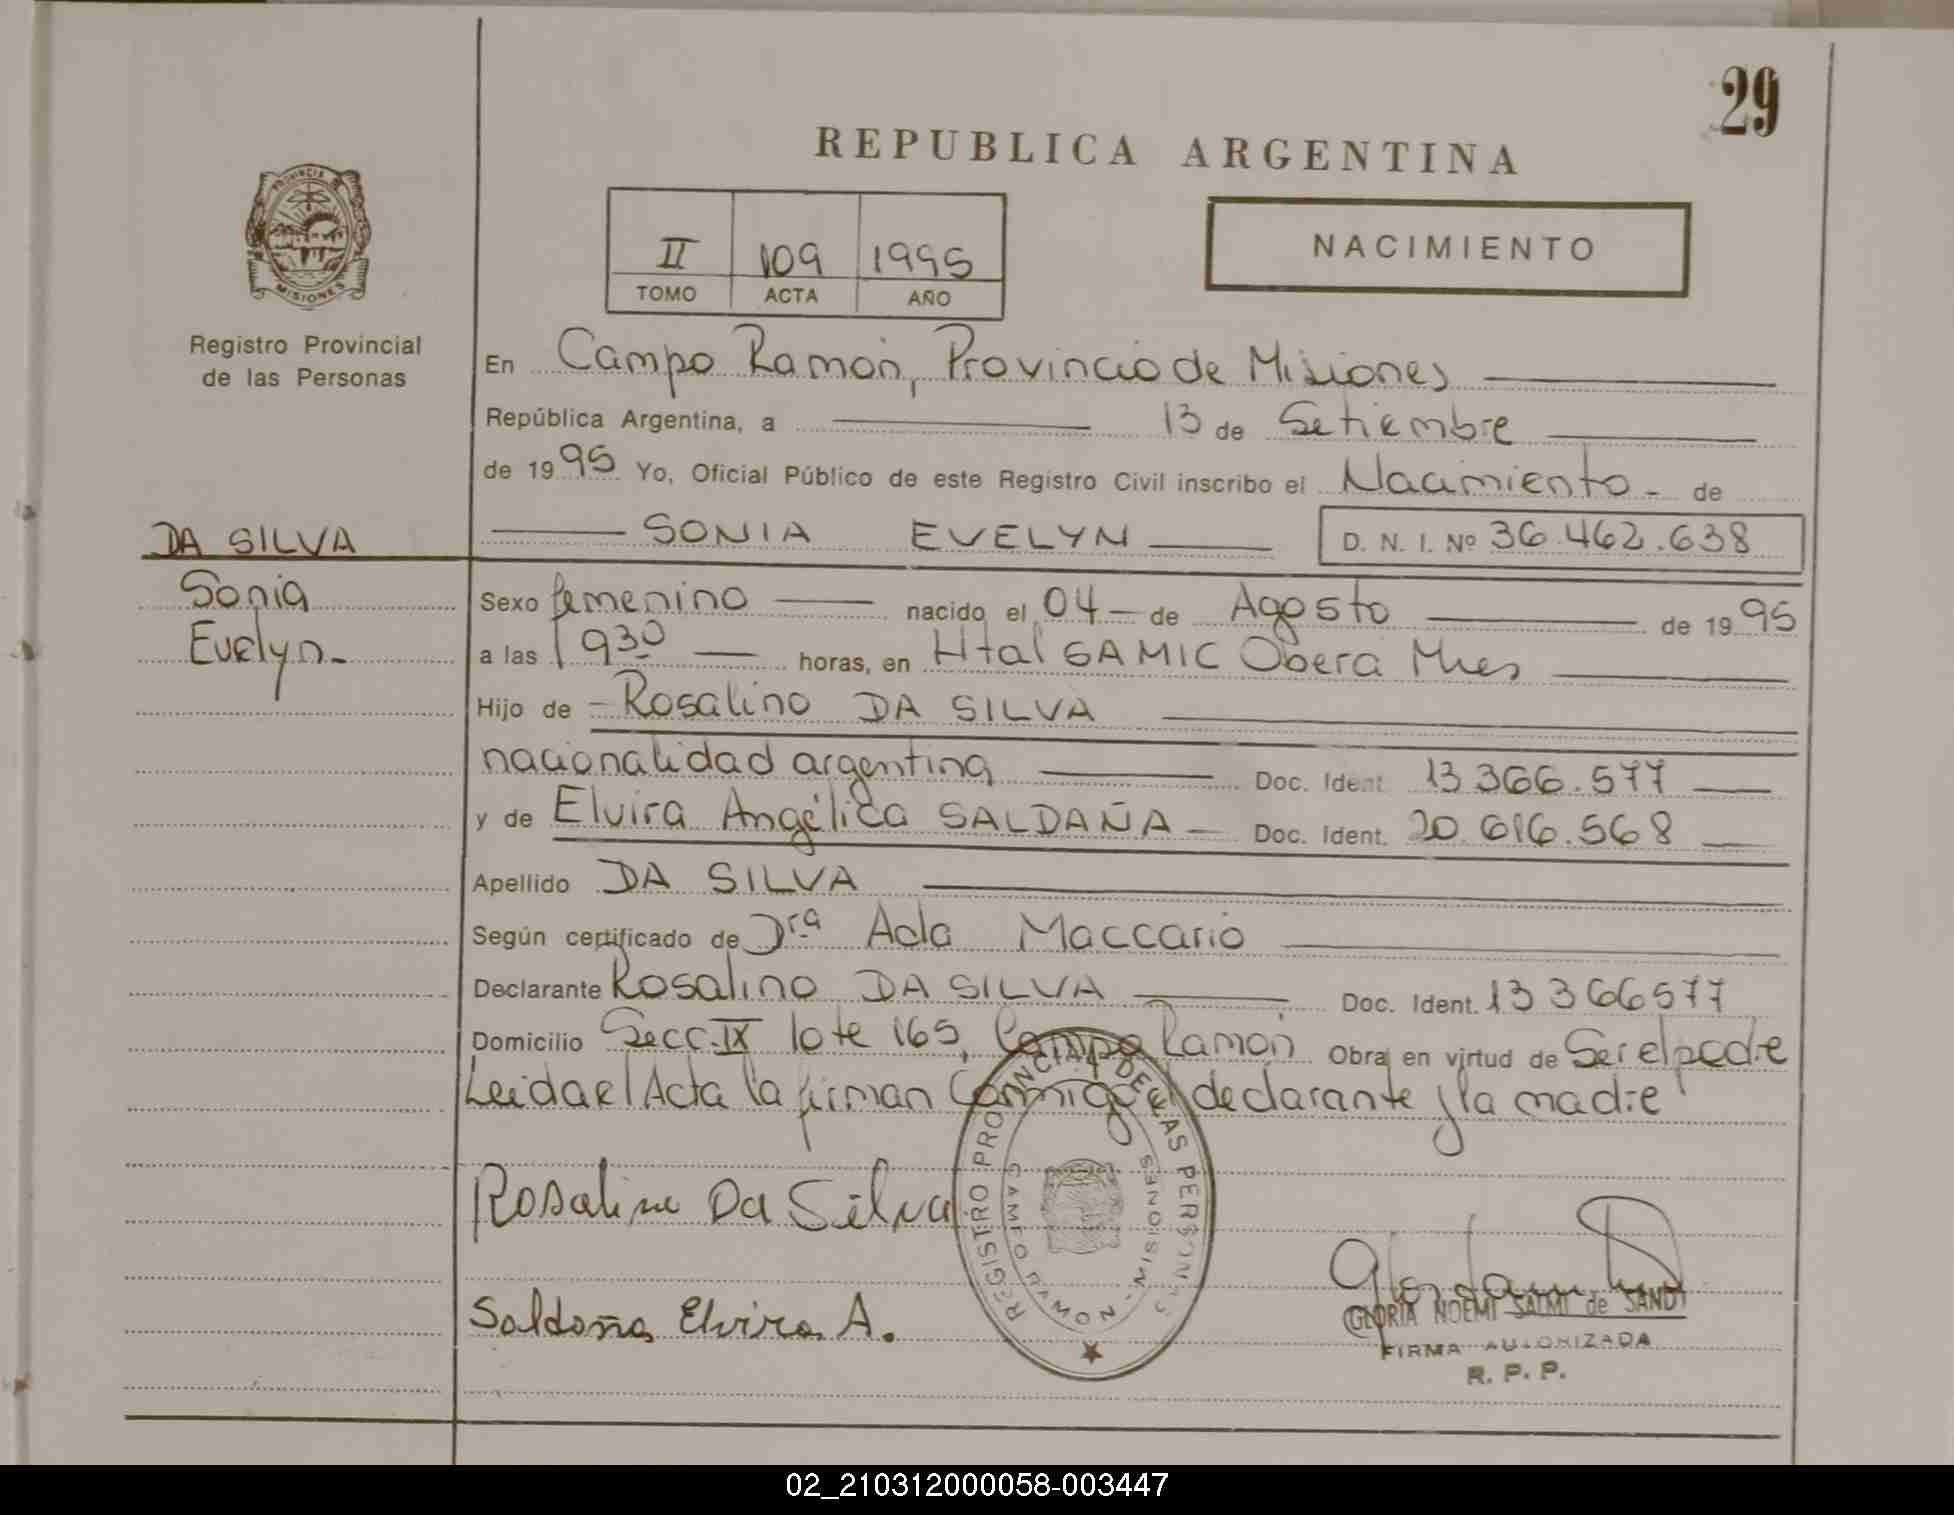 29
REPUBLICA ARGENTINA
PROVINCIA DE
MISIONES
Registro Provincial
de las Personas
II 109 1995
TOMO ACTA AÑO
NACIMIENTO
En Campo Ramón, Provincia de Misiones
República Argentina, a 13 de Setiembre
de 1995 Yo, Oficial Público de este Registro Civil inscribo el Nacimiento - de
SONIA EVELYN D. N. I. Nº 36.462.638
DA SILVA
Sonia
Evelyn-
Sexo femenino nacido el 04 de Agosto de 1995
a las 1930 horas, en Htal SAMIC Oberá Mnes
Hijo de - Rosalino DA SILVA
nacionalidad argentina Doc. Ident. 13 366.577
y de Elvira Angélica SALDAÑA Doc. Ident. 20.616.568
Apellido DA SILVA
Según certificado de Dra Ada Maccario
Declarante Rosalino DA SILVA Doc. Ident. 13 366577
Domicilio Secc. IX lote 165, Campo Ramón Obra en virtud de Ser el padre
Leida el Acta la firman Conmigo el declarante y la madre
Rosalino Da Silva
Saldaña Elvira A.
REGISTRO PROVINCIAL DE LAS PERSONAS
CAMPO RAMON - MISIONES
GLORIA NOEMI SALMI de SAND
FIRMA AUTORIZADA
R. P. P.
02_210312000058-003447